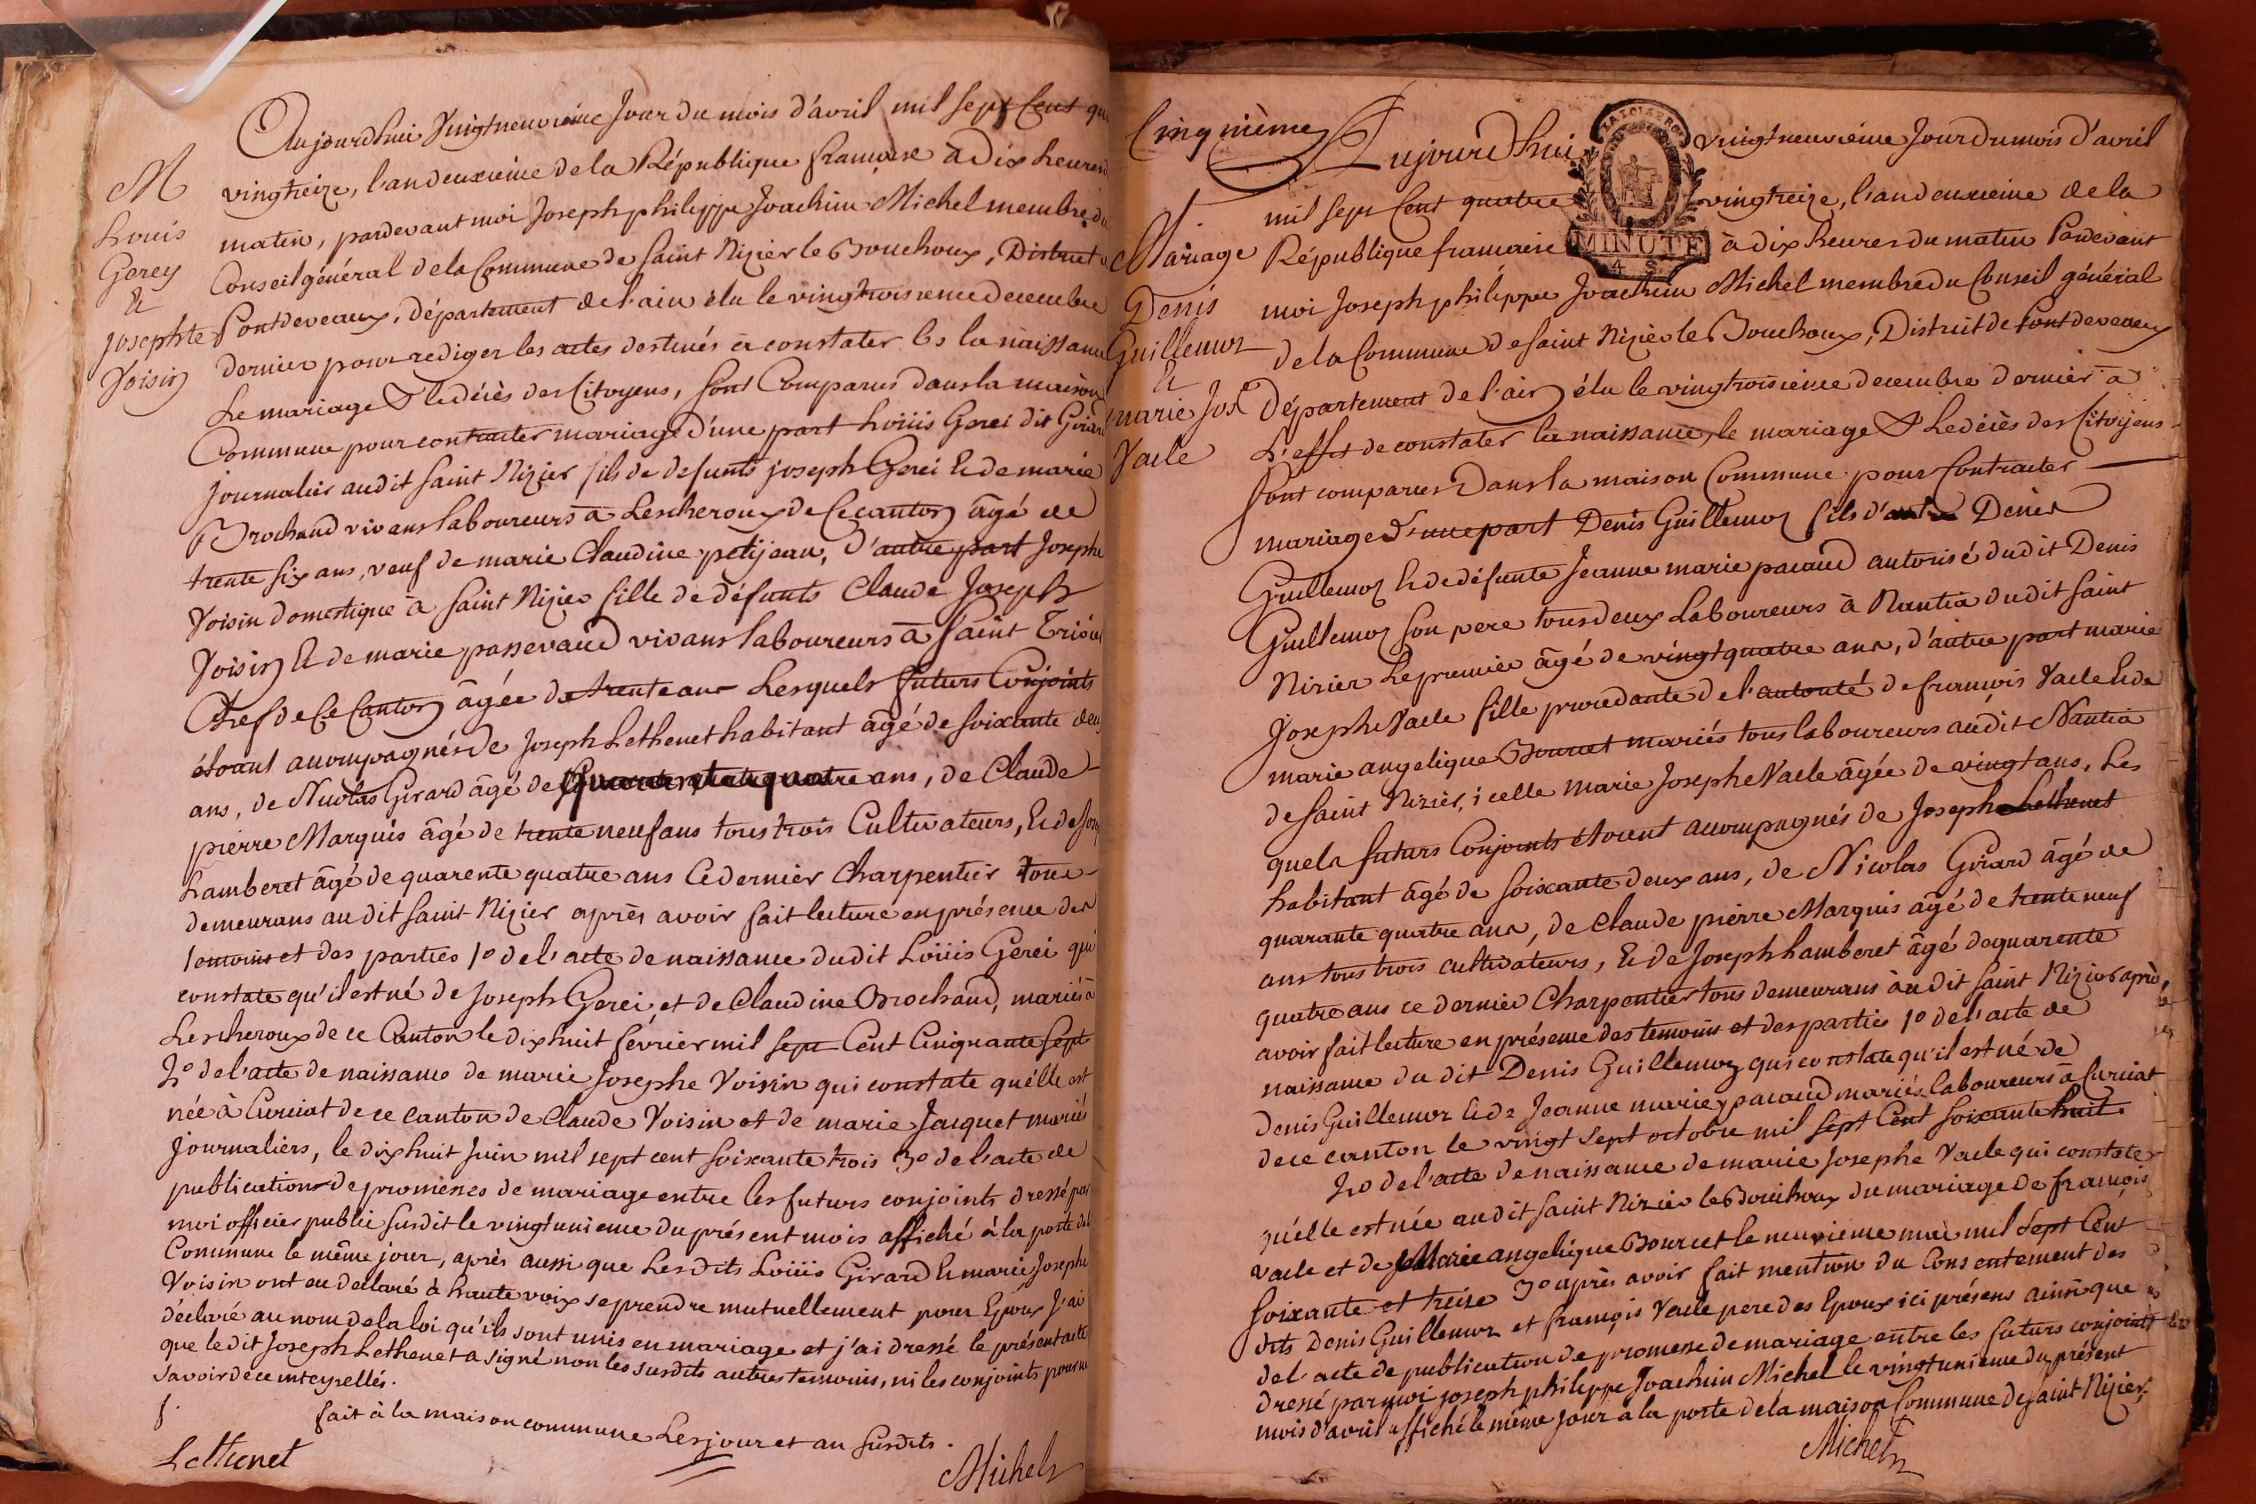 Aujourdhui Vingtneuvieme Jour du mois d'avril mil sept Cent qu
M
Louis
Gerey
&
Josephte
Voisin
vingtreize, l'an deuxieme de la République francaise à Dix heures
matin, pardevant moi Joseph philippe Joachim Michel membre du
Conseil général de la Commune de Saint Nizier le Bouchoux, District
Pontdevaux, département de l'ain élu le vingtroisieme decembre
dernier pour rediger les actes destinés à constater la naissance
Le mariage & le décès des Citoyens, sont Comparus dans la maison
Commune pour contracter mariage d'une part Louis Gerei dit Girard
journalier audit saint Nizier fils de defunts joseph Gerei & de marie
Brochaud vivans laboureurs à Lescheroux de ce canton âgé de
trente six ans, veuf de marie Claudine petijean, d'autre part Josephe
Voisin domestique à saint Nizier fille de défunts Claude Joseph
Voisin & de marie passevaud vivans laboureurs à saint Trivier
Chef de Ce Canton âgée de trente ans Lesquels futurs Conjoints
étoant accompagnés de Joseph Lethenet habitant âgé de soixante deux
ans, de Nicolas Girard âgé de quatre ans, de Claude
pierre Marquis âgé de trente neuf ans tous trois Cultivateurs, & de Jos
Lamberet âgé de quarente quatre ans Ce dernier Charpentier tous
demeurans au dit saint Nizier après avoir fait lecture en présence des
temoins et des parties 1º de l'acte de naissance dudit Louis Gerei qui
constate qu'il est né de Joseph Gerei, et de Claudine Brochaud, mariés à
Lescheroux de ce Canton le dix huit février mil sept Cent Cinquante sept
2º de l'acte de naissance de marie Josephe Voisin qui constate qu'elle est
née à Curciat de ce canton de Claude Voisin et de marie Jacquet mariés
Journaliers, le dix huit Juin mil sept cent soixante trois 3º de l'acte de
publication de promesses de mariage entre les futurs conjoints dressé par
moi officier public susdit le vingtunieme du présent mois affiché à la porte de la
Commune le même jour, après aussi que Lesdits Louis Girard & marie Josephe
Voisin ont eu declaré à haute voix se prendre mutuellement pour Epoux J'ai
déclaré au nom de la loi qu'ils sont unis en mariage et j'ai dressé le présent acte
que ledit Joseph Lethenet a signé non les susdits autres temoins, ni les conjoints pour ne
savoir de ce interpellés.
fait à la maison commune Les jour et an susdits.
Lethenet
Michel
Cinqnième
Aujourdhui vingtneuvieme Jour du mois d'avril
LA LOI LE ROI
MINUTE
4 S
Mariage
Denis
Guillemoz
&
marie Jos
Vacle
mil sept Cent quatre vingtreize, l'an deuxieme de la
République francaise à dix heures du matin Pardevant
moi Joseph philippe Joachim Michel membre du Conseil général
de la Commune de saint Nizier le Bouchoux, District de Pontdevaux
Département de l'ain élu le vingtroisieme decembre dernier à
L'effet de constater la naissance, le mariage & Le décès des Citoyens
sont comparus Dans la maison Commune pour Contracter
mariage d'une part Denis Guillemoz fils d'autre Denis
Guillemoz & de défunte Jeanne marie pacaud autorisé dudit Denis
Guillemoz son pere tous deux Laboureurs à Nantia dudit saint
Nizier Le premier âgé de vingt quatre ans, d'autre part marie
Josephe Vacle fille procedante de l'autorité de francois Vacle & de
marie angelique Bourcet mariés tous laboureurs audit Nantia
de saint Nizier, icelle marie Josephe Vacle âgée de vingt ans, Les
quels futurs Conjoints étoient accompagnés de Joseph Lethenet
habitant âgé de soixante deux ans, de Nicolas Girard âgé de
quarante quatre ans, de Claude pierre Marquis âgé de trente neuf
ans tous trois cultivateurs, & de Joseph Lamberet âgé de quarente
quatre ans ce dernier Charpentier tous demeurans audit saint Nizier après
avoir fait lecture en présence des temoins et des parties 1º de l'acte de
naissance du dit Denis Guillemoz qui constate qu'il est né de
Denis Guillemoz & de Jeanne marie pacaud mariés laboureurs à Curciat
de ce canton le vingt sept octobre mil sept Cent soixante huit.
2º de l'acte de naissance de marie Josephe Vacle qui constate
qu'elle est née audit saint Nizier le Bouchoux du mariage de francois
Vacle et de Marie angelique Bourcet le neuvieme mai mil sept Cent
soixante et treize 3º après avoir fait mention du Consentement des
dits Denis Guillemoz et francois Vacle pere des Epoux ici présens ainsi que
de l'acte de publication de promesse de mariage entre les futurs conjoints
dressé par moi joseph philippe Joachim Michel le vingtunieme du présent
mois d'avril affiché le même jour à la porte de la maison Commune de saint Nizier,
Michel